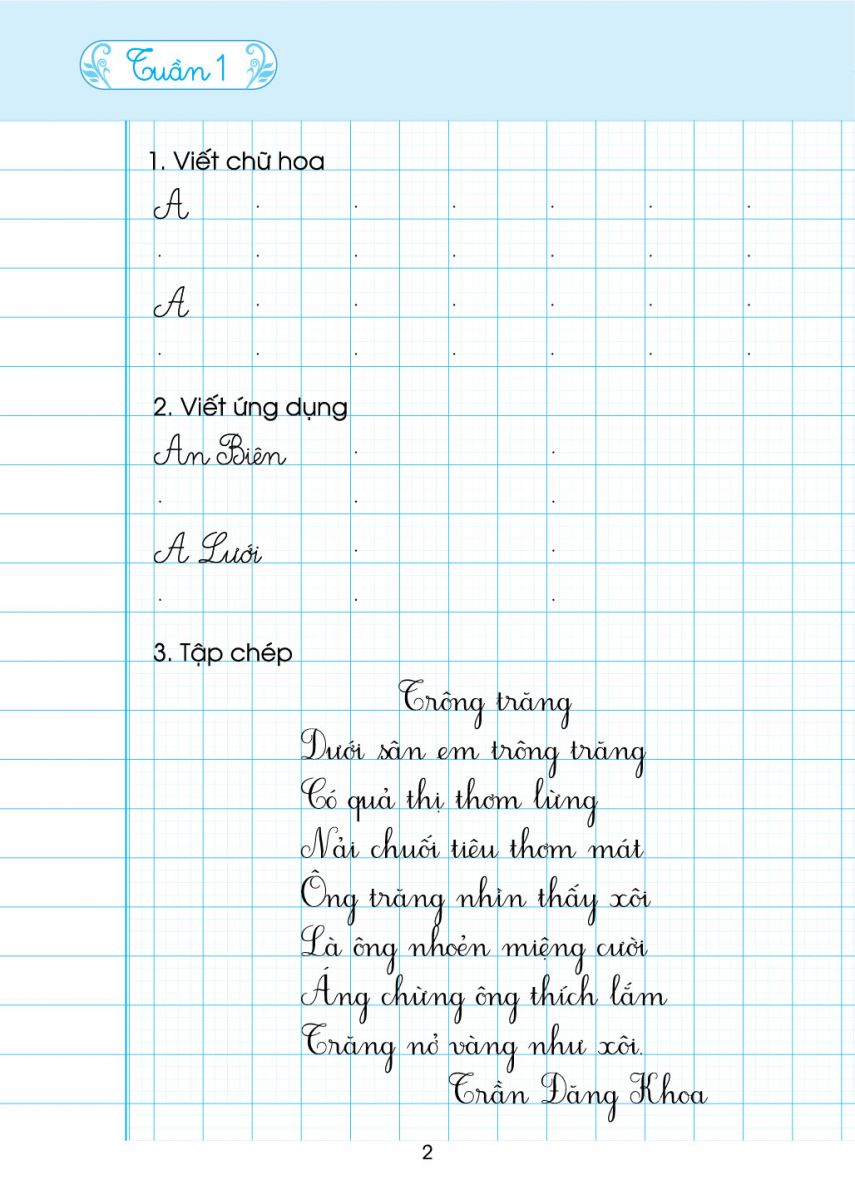 Tuần 1
1. Viết chữ hoa
A
A
2. Viết ứng dụng
An Biên
A Lưới
3. Tập chép
Trông trăng
Dưới sân em trông trăng
Có quả thị thơm lừng
Nải chuối tiêu thơm mát
Ông trăng nhìn thấy xôi
Là ông nhoẻn miệng cười
Áng chừng ông thích lắm
Trăng nở vàng như xôi.
Trần Đăng Khoa
2